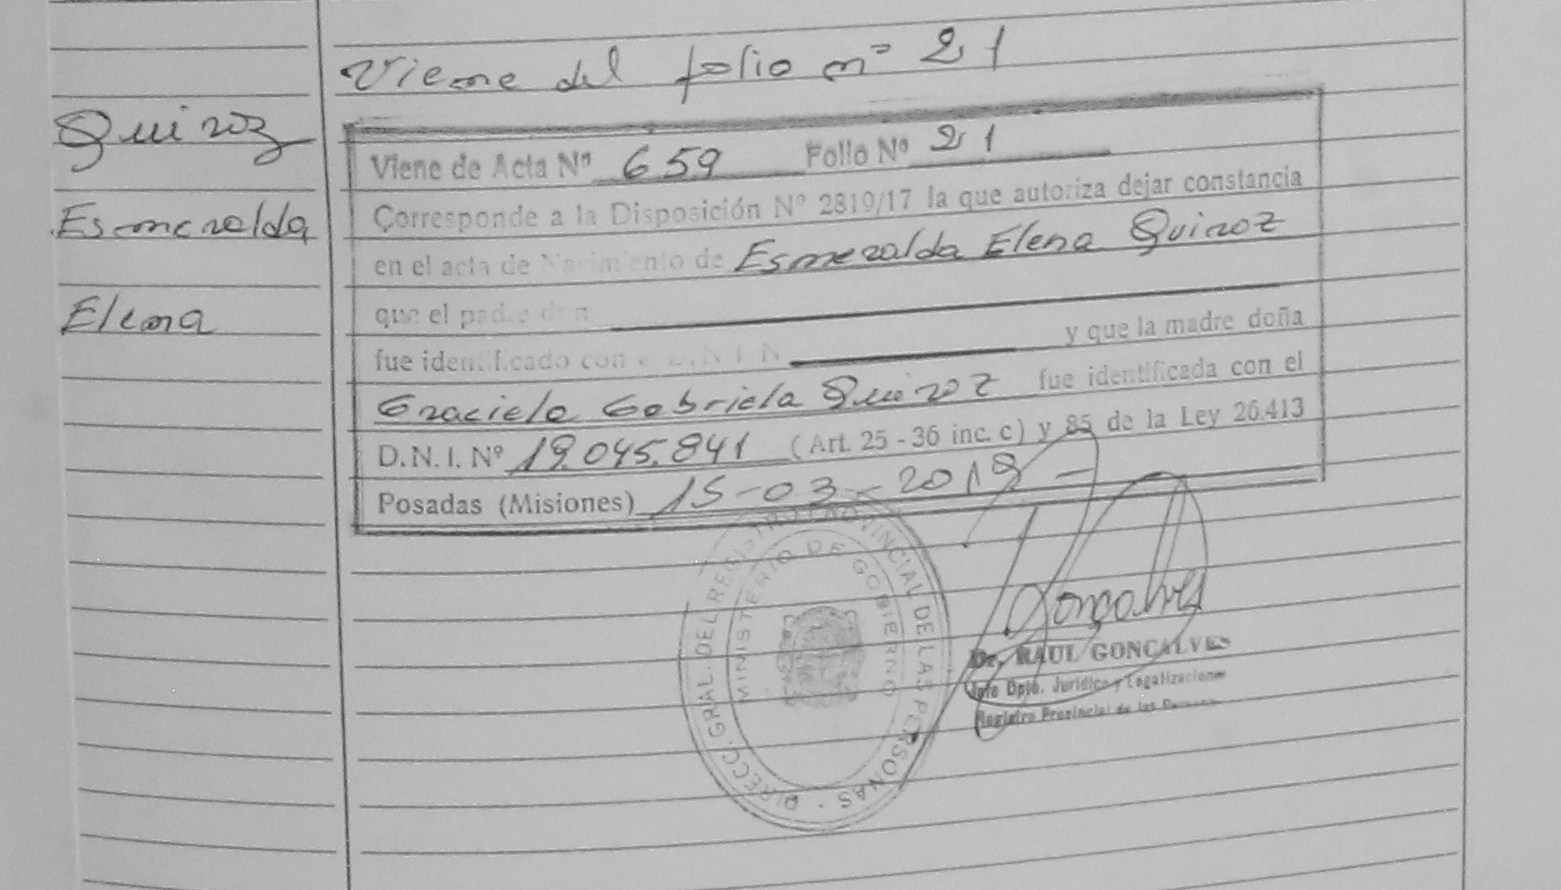 Viene del folio nº 21
Quiroz
Esmeralda
Elena
Viene de Acta Nº 659 Folio Nº 21
Corresponde a la Disposición Nº 2819/17 la que autoriza dejar constancia
en el acta de Nacimiento de Esmeralda Elena Quiroz
que el padre don
fue identificado con D.N.I. N y que la madre doña
Graciela Gabriela Quiroz fue identificada con el
D.N.I. Nº 19.045.841 (Art. 25 - 36 inc. c) y 85 de la Ley 26.413
Posadas (Misiones) 15-03-2019
DIRECC. GRAL. DEL REGISTRO PROVINCIAL DE LAS PERSONAS -
MINISTERIO DE GOBIERNO
Gonçalves
Dr. RAUL GONCALVES
Jefe Dpto. Jurídico y Legalizaciones
Registro Provincial de las Personas